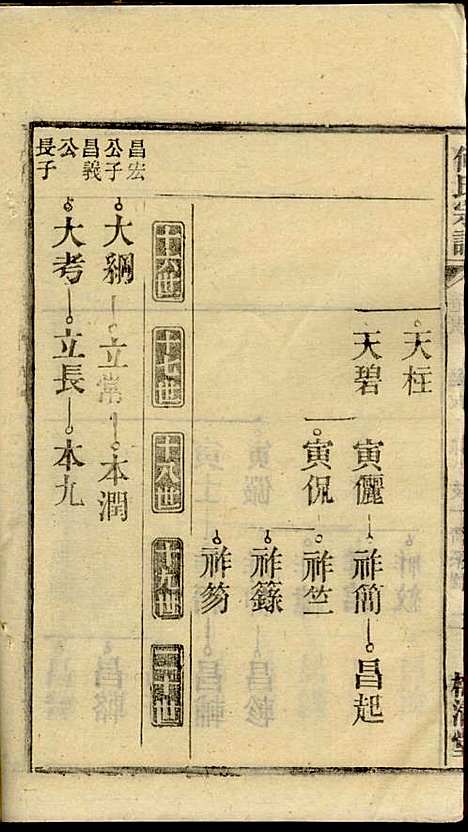 氏宗譜
天柱
天碧
寅儷 祚簡 昌起
寅侃 祚竺
祚籙
祚笏
十六世 十七世 十八世 十九世 二十世
昌宏
公子
大綱 立常 本潤
昌義
公
長子
大考 立長 本九